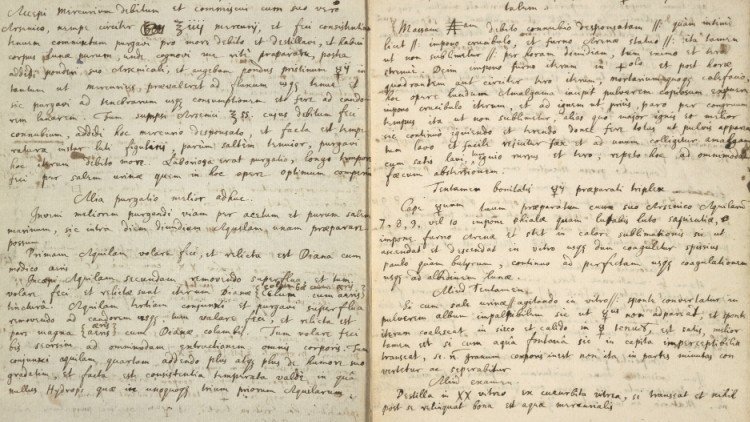 Accepi mercurium debitum et commiscui cum suo vero
Arsenico, nempe circiter ℥ iiii mercurij, et feci consistentiam
tenuem commixtam purgavi pro more debito et destillavi, et habui
corpus Lunæ purum, unde cognovi me rite præparasse, postea
addidi ponderi suo Arsenicali, et augebam pondus pristinum ☿ij in
tantum ut mercurius prævaleret ad fluxum usqȝ tenue et
sic purgavi ad tenebrarum usqȝ consumptionem et fere ad candorem
lunarem. Tum sumpsi Arsenici ℥ss. cujus debitum feci
connubium, addidi hoc mercurio disponsato, et facta est temperatura
instar luti figularis, parum saltem tenuior, purgavi
hoc iterum debito more. Laboriosa erat purgatio, longo tempore
feci per salem urinæ quem in hoc opere optimum comperi
Alia purgatio melior adhuc.
Inveni meliorem purgandi viam per acetum et purum salem
marinum, sic intra diem dimidium Aquilam unam præparare
possum
Primam Aquilam volare feci, et relicta est Diana cum
modico æris
Incepi Aquilam secundam removendo superflua, et tum
volare feci et relictæ sunt iterum Dianæ columbæ cum æris
tinctura. Aquilam tertiam conjunxi et purgavi superflua
removendo ad candorem usqȝ tum volare feci; et relicta est
pars magna æris cum Dianæ columbis. Tum volare feci
bis seorsim ad omnimodam extractionem omnis corporis. Tum
conjunxi aquilam quartam addendo plus atqȝ plus de humore suo
gradatim, et facta est consistentia temperata valdè in qua
nullus Hydrops qui in unoquoqȝ trium priorum Aquilarum
talem.
Massam debito connubio desponsatam quam intime
licet impono crucibulo, et furno Arenæ statuo ita tamen
ut non sublimetur per horam dimidiam, tum eximo et tero
strenue. Dein impono furno iterum in et post horæ
quadrantem aut circiter tero iterum, mortarium quoqȝ calefacio,
hoc opere laudam Amalgama incipit pulverem copiosum expuere,
impono crucibulo iterum, et ad ignem ut prius, paro per congruum
tempus ita ut non sublimetur, alias quo major ignis eo melior
sic continuo igniendo et terendo donec fere totus ut pulvis appareat
tum lavo et facile rejicitur fæx et ad unum colligetur Amalgama
cum satis lavi, ignio rursus et tero; repeto hoc ad omnimodam
fæcum abstersionem.
Tentamen bonitatis ☿ij præparati triplex.
Cape ☿ium tuum præparatum cum suo Arsenico Aquilarum
7, 8, 9, vel 10 impone phialæ quam lutabis luto sapientiæ,
impone furno Arenæ et stet in calore sublimationis sic ut
ascendat et descendat in vitro usqȝ dum coaguletur spissius
paulo quam butyrum, continuo ad perfectam usqȝ coagulationem
usqȝ ad albedinem Lunæ.
Aliud Tentamen
Si cum sale urinæ agitando in vitro sponte convertatur in
pulverem album impalpabilem sic ut ☿ius non appareat, et sponte
iterum coalescat, in sicco et calido in ☿ tenuem, est satis, melior
tamen est si cum aqua fontana sic in capita imperceptibilia
transeat, si n̄ granum corporis inest non ita in partes minutas con
vertetur ac separabitur
Aliud examen.
Destilla in XX vitreo ex cucurbita vitrea, si transeat et nihil
post se relinquat bona est aqua mercurialis